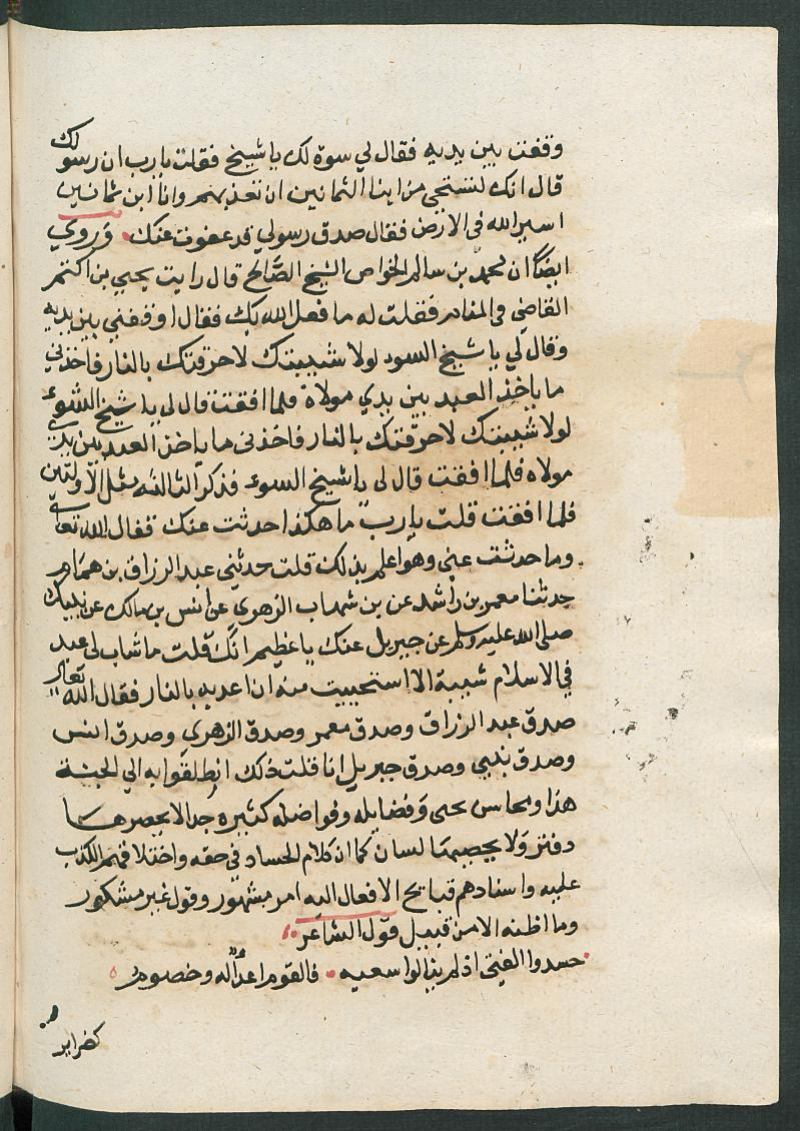 وقفت بين يديه فقال لي سوة لك يا شيخ فقلت يا رب ان رسولك
قال انك لتستحي من ابنا الثمانين ان تعذبهم وانا ابن ثمانين
اسير الله في الارض فقال صدق رسولي قد عفوت عنك وروي
ايضًا ان محمد بن سالم الخواص الشيخ الصالح قال رايت يحيي بن اكثم
القاضي في المنام فقلت له ما فعل الله بك فقال اوقفني بين يديه
وقال لي يا شيخ السوء لولا شيبتك لاحرقتك بالنار فاخذني
ما ياخذ العبد بين يدي مولاه فلما افقت قال لي يا شيخ السوء
لولا شيبتك لاحرقتك بالنار فاخذني ما ياخذ العبد بين يدي
مولاه فلما افقت قال لي يا شيخ السوء فذكر الثالثه مثل الاولتين
فلما افقت قلت يا رب ما هكذا حدثت عنك فقال الله تعالى
وما حدثت عني وهو اعلم بذلك قلت حدثني عبد الرزاق بن همام
حدثنا معمر بن راشد عن بن شهاب الزهري عن انس بن مالك عن نبيك
صلى الله عليه وسلم عن جبريل عنك يا عظيم انك قلت ما شاب لي عبد
في الاسلام شيبة الا استحييت منه ان اعذبه بالنار فقال الله تعالى
صدق عبد الرزاق وصدق معمر وصدق الزهري وصدق انس
وصدق نبيي وصدق جبريل انا قلت ذلك انطلقوا به الي الجنة
هذا ومحاس يحيى وفضايله وفواضله كثيره جدا لا يحصرها
دفتر ولا يحصيها لسان كما ان كلام الحساد في حقه واختلافهم الكذب
عليه واسنادهم قبايح الافعال اليه امر مشهور وقول غير مشكور
وما اظنه الا من قبيل قول الشاعر
حسدوا الفتى اذ لم ينالوا سعيه فالقوم اعداٌ له وخصوم
كضراير